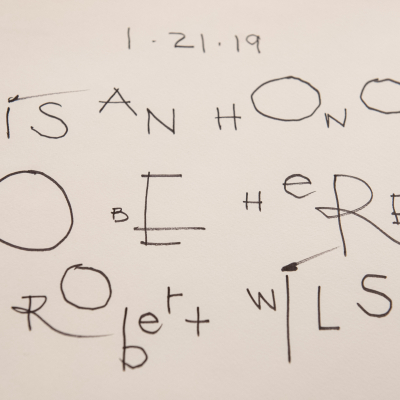 1.21.19
iS AN HONO
O BE HeRE
RObert WILS